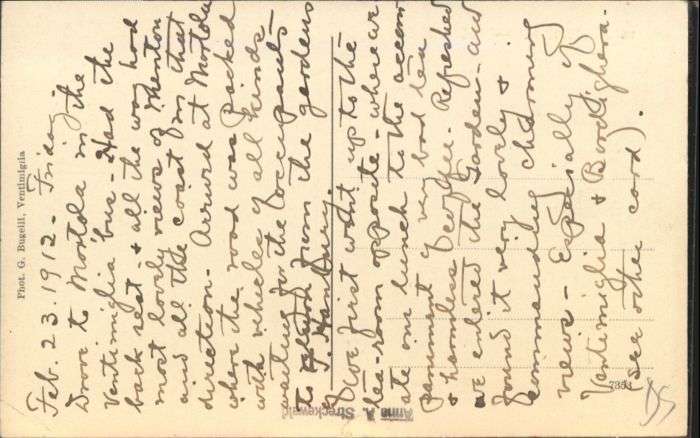 Feb. 23. 1912 - Friday -
Drove to Mortola in the
Ventimiglia bus Had the
back seat - & all the way had
most lovely views of Menton
and all the coast in that
direction - Arrived at Mortola
where the road was packed
with vehicles of all kinds
waiting for the occupants
to return from the gardens
of T. Hanbury.
We first went up to the
tea-room opposite - where we
ate our lunch to the accom
paniment of very bad tea
& harmless coffee - Refreshed
we entered the Garden - and
found it very lovely &
commanding charming
views - Especially of
Ventimiglia & Bordighera.
(see other card).
Phot. G. Bugelli, Ventimiglia
7354
Anna A. Streckewald